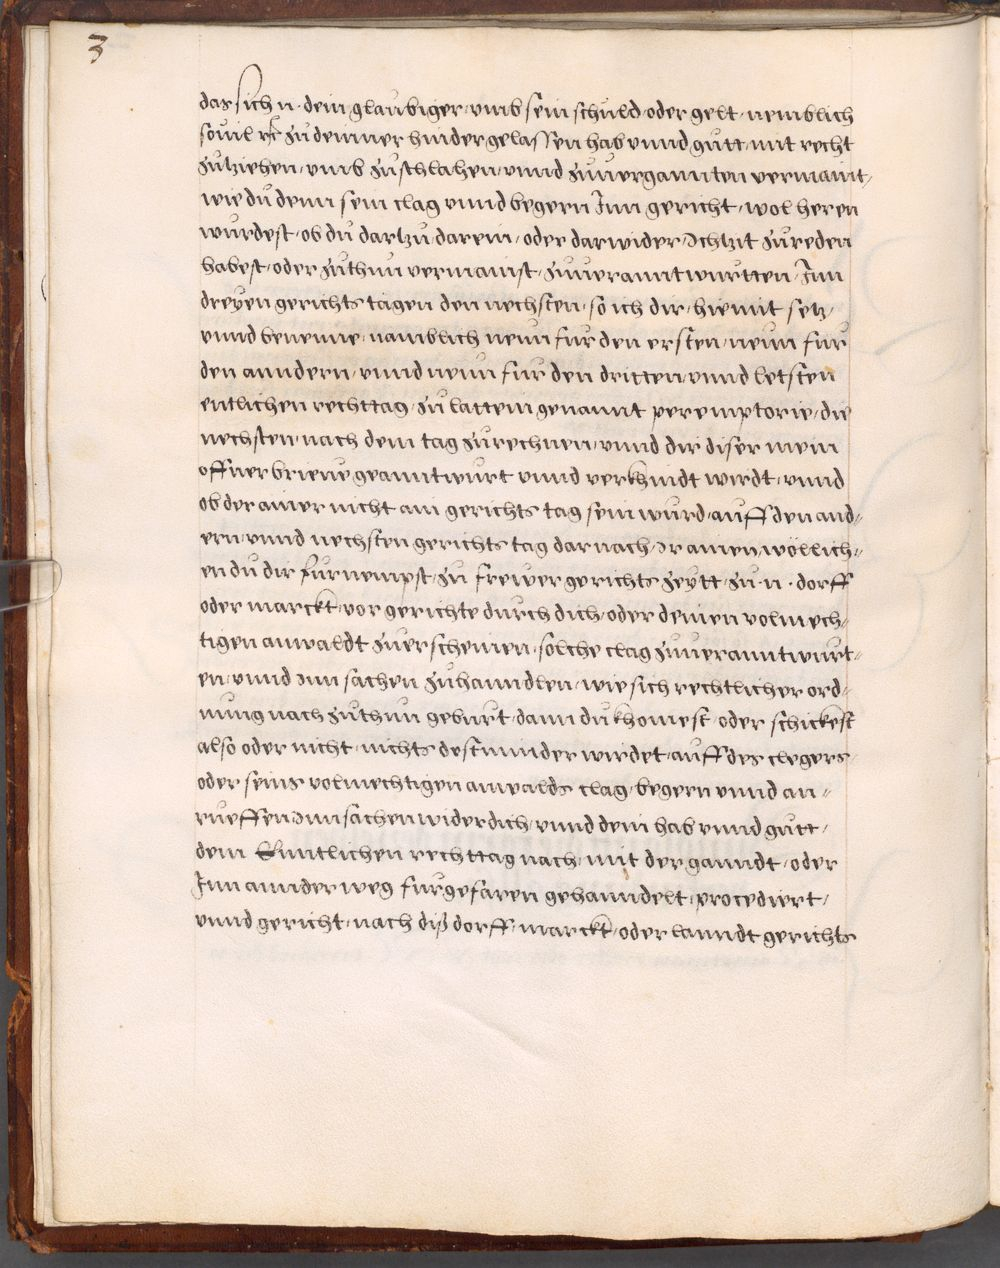 3
das sich n. dein glaubiger, vmb sein schuld oder gelt, nemblich
souil rf zu deinner hinder gelassen hab vnnd gutt, mit recht
zutziehen, vmb zuschlahen, vnnd zuuerganntten vermaint,
wie du denn sein clag vnnd begern Jnn gericht, wol heren
wurdest, ob du dartzu, darein, oder darwider, Ichtzit zureden
habest, oder zuthun vermainst, zuuerantwurtten, Jnn
dreyen gerichts tagen den nechsten, so ich dir, hiemit setz,
vnnd benenne, namblich neun fur den ersten, neun fur
den anndern, vnnd neun fur den dritten, vnnd letsten
entlichen rechttag, zu lattein genannt peremptorie, die
nechsten, nach dem tag zurechnen, vnnd dir diser mein
offner brieue geanntwurt vnnd verkhindt wirdt, vnnd
ob der ainer nicht ain gerichts tag sein wurd, auff den and-
ern, vnnd nechsten gerichts tag darnach, Ir ainen, wöllich-
en du dir furnempst, zu frewer gerichts zeytt, zu n. dorff
oder marckt, vor gerichte durch dich, oder deinen volmech-
tigen anwaldt zuerscheinen, solche clag zuuerantwurt-
en, vnnd Inn sachen zuhanndlen, wie sich rechtlicher ord-
nung nach zuthun geburt, dann du khomest, oder schickest
also oder nicht, nichts destminder wirdet, auff des clegers
oder seins volmechtigen anwalds clag, begern vnnd an-
rueffen Inn sachen wider dich, vnnd dein hab vnnd gutt,
dem Enntlichen rechttag nach, mit der ganndt, oder
Jnn annder weg furgefaren gehanndelt, procediert,
vnnd gericht, nach diß dorff, marckt, oder lanndt gerichts